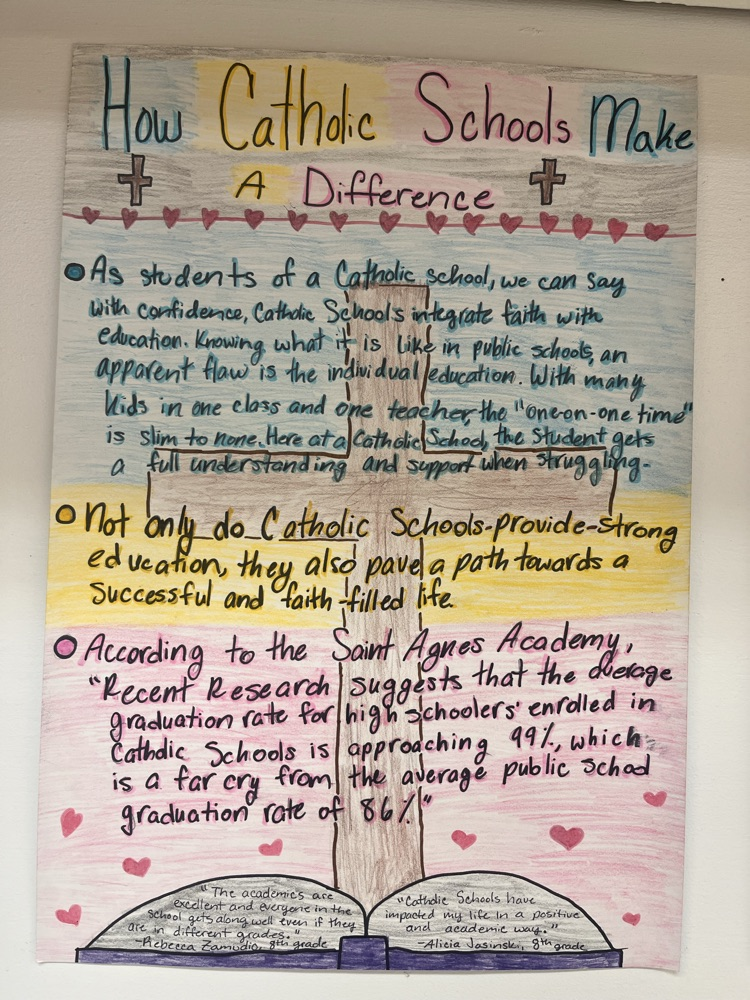 How Catholic Schools Make
A Difference
As students of a Catholic school, we can say
with confidence, Catholic Schools integrate faith with
education. Knowing what it is like in public schools, an
apparent flaw is the individual education. With many
kids in one class and one teacher, the "one-on-one time"
is slim to none. Here at a Catholic School, the student gets
a full understanding and support when struggling.
Not only do Catholic Schools-provide-strong
education, they also pave a path towards a
successful and faith-filled life.
According to the Saint Agnes Academy,
"Recent Research suggests that the average
graduation rate for high schoolers' enrolled in
Catholic Schools is approaching 99%, which
is a far cry from the average public school
graduation rate of 86%"
"The academics are
excellent and everyone in the
school gets along well even if they
are in different grades."
-Rebecca Zamudio, 8th grade
"Catholic Schools have
impacted my life in a positive
and academic way."
-Alicia Jasinski, 8th grade